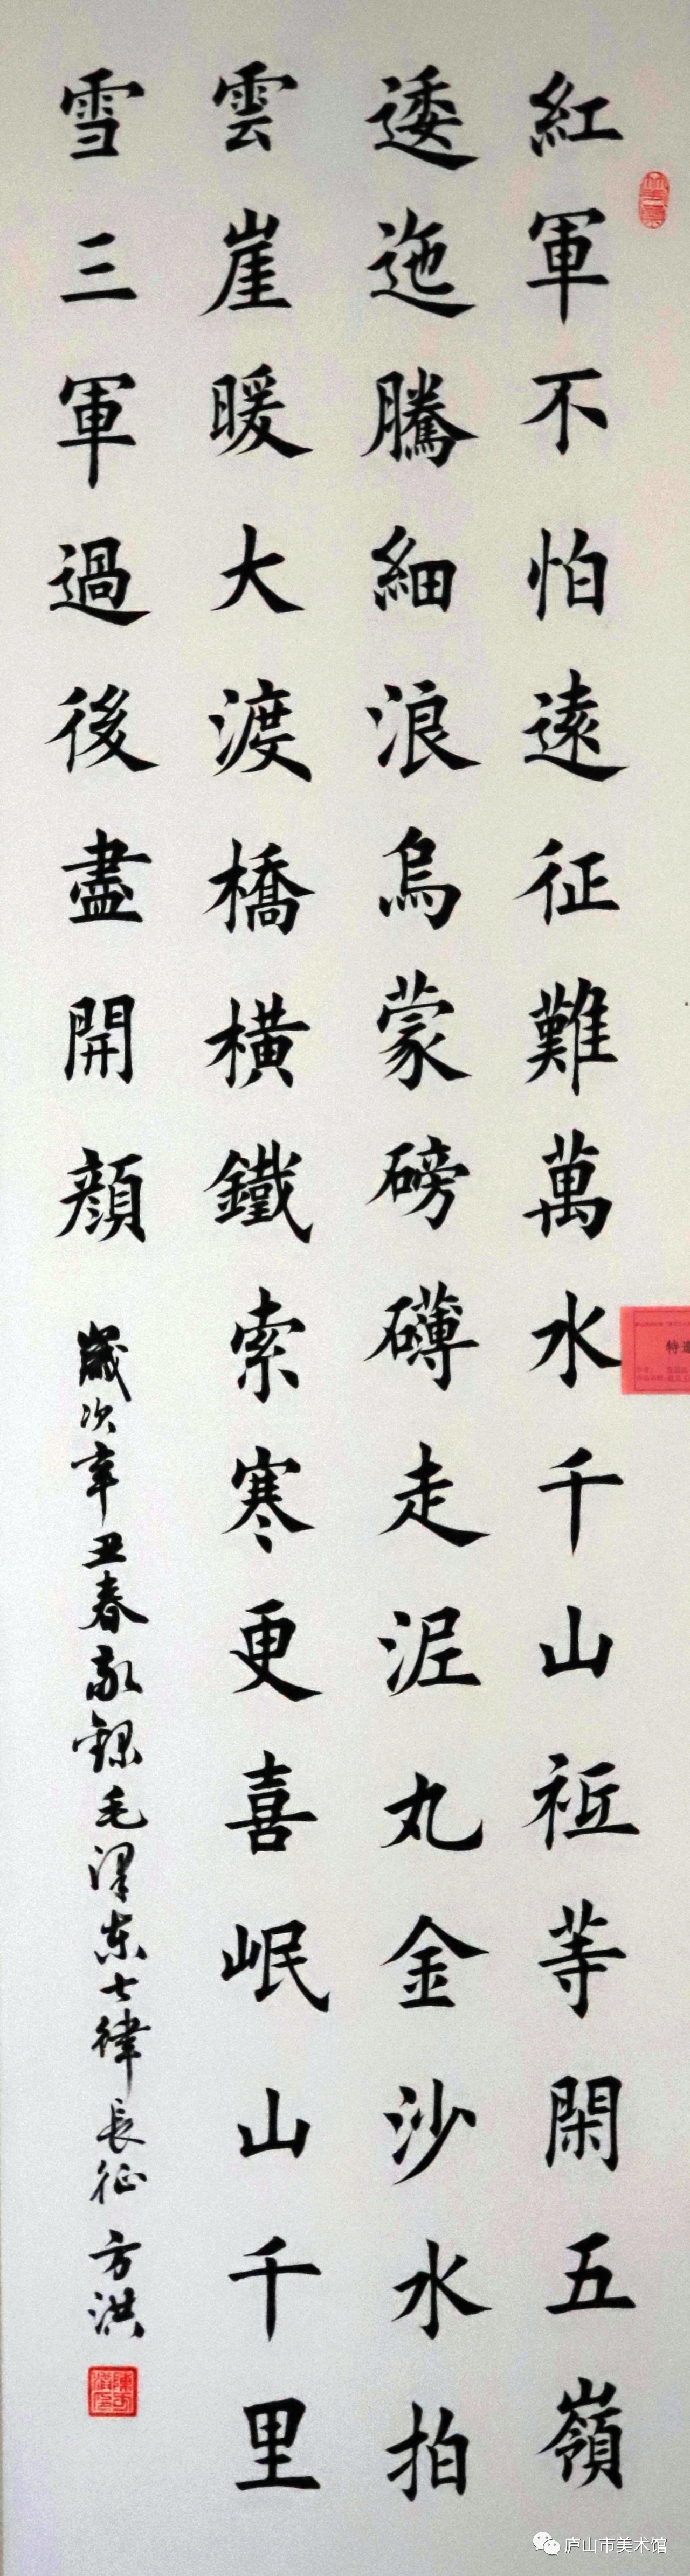 紅軍不怕遠征難萬水千山祗等閑五嶺
逶迤騰細浪烏蒙磅礴走泥丸金沙水拍
雲崖暖大渡橋橫鐵索寒更喜岷山千里
雪三軍過後盡開顏
歲次辛丑春敬錄毛澤東七律長征 方洪
特邀
庐山市美术馆